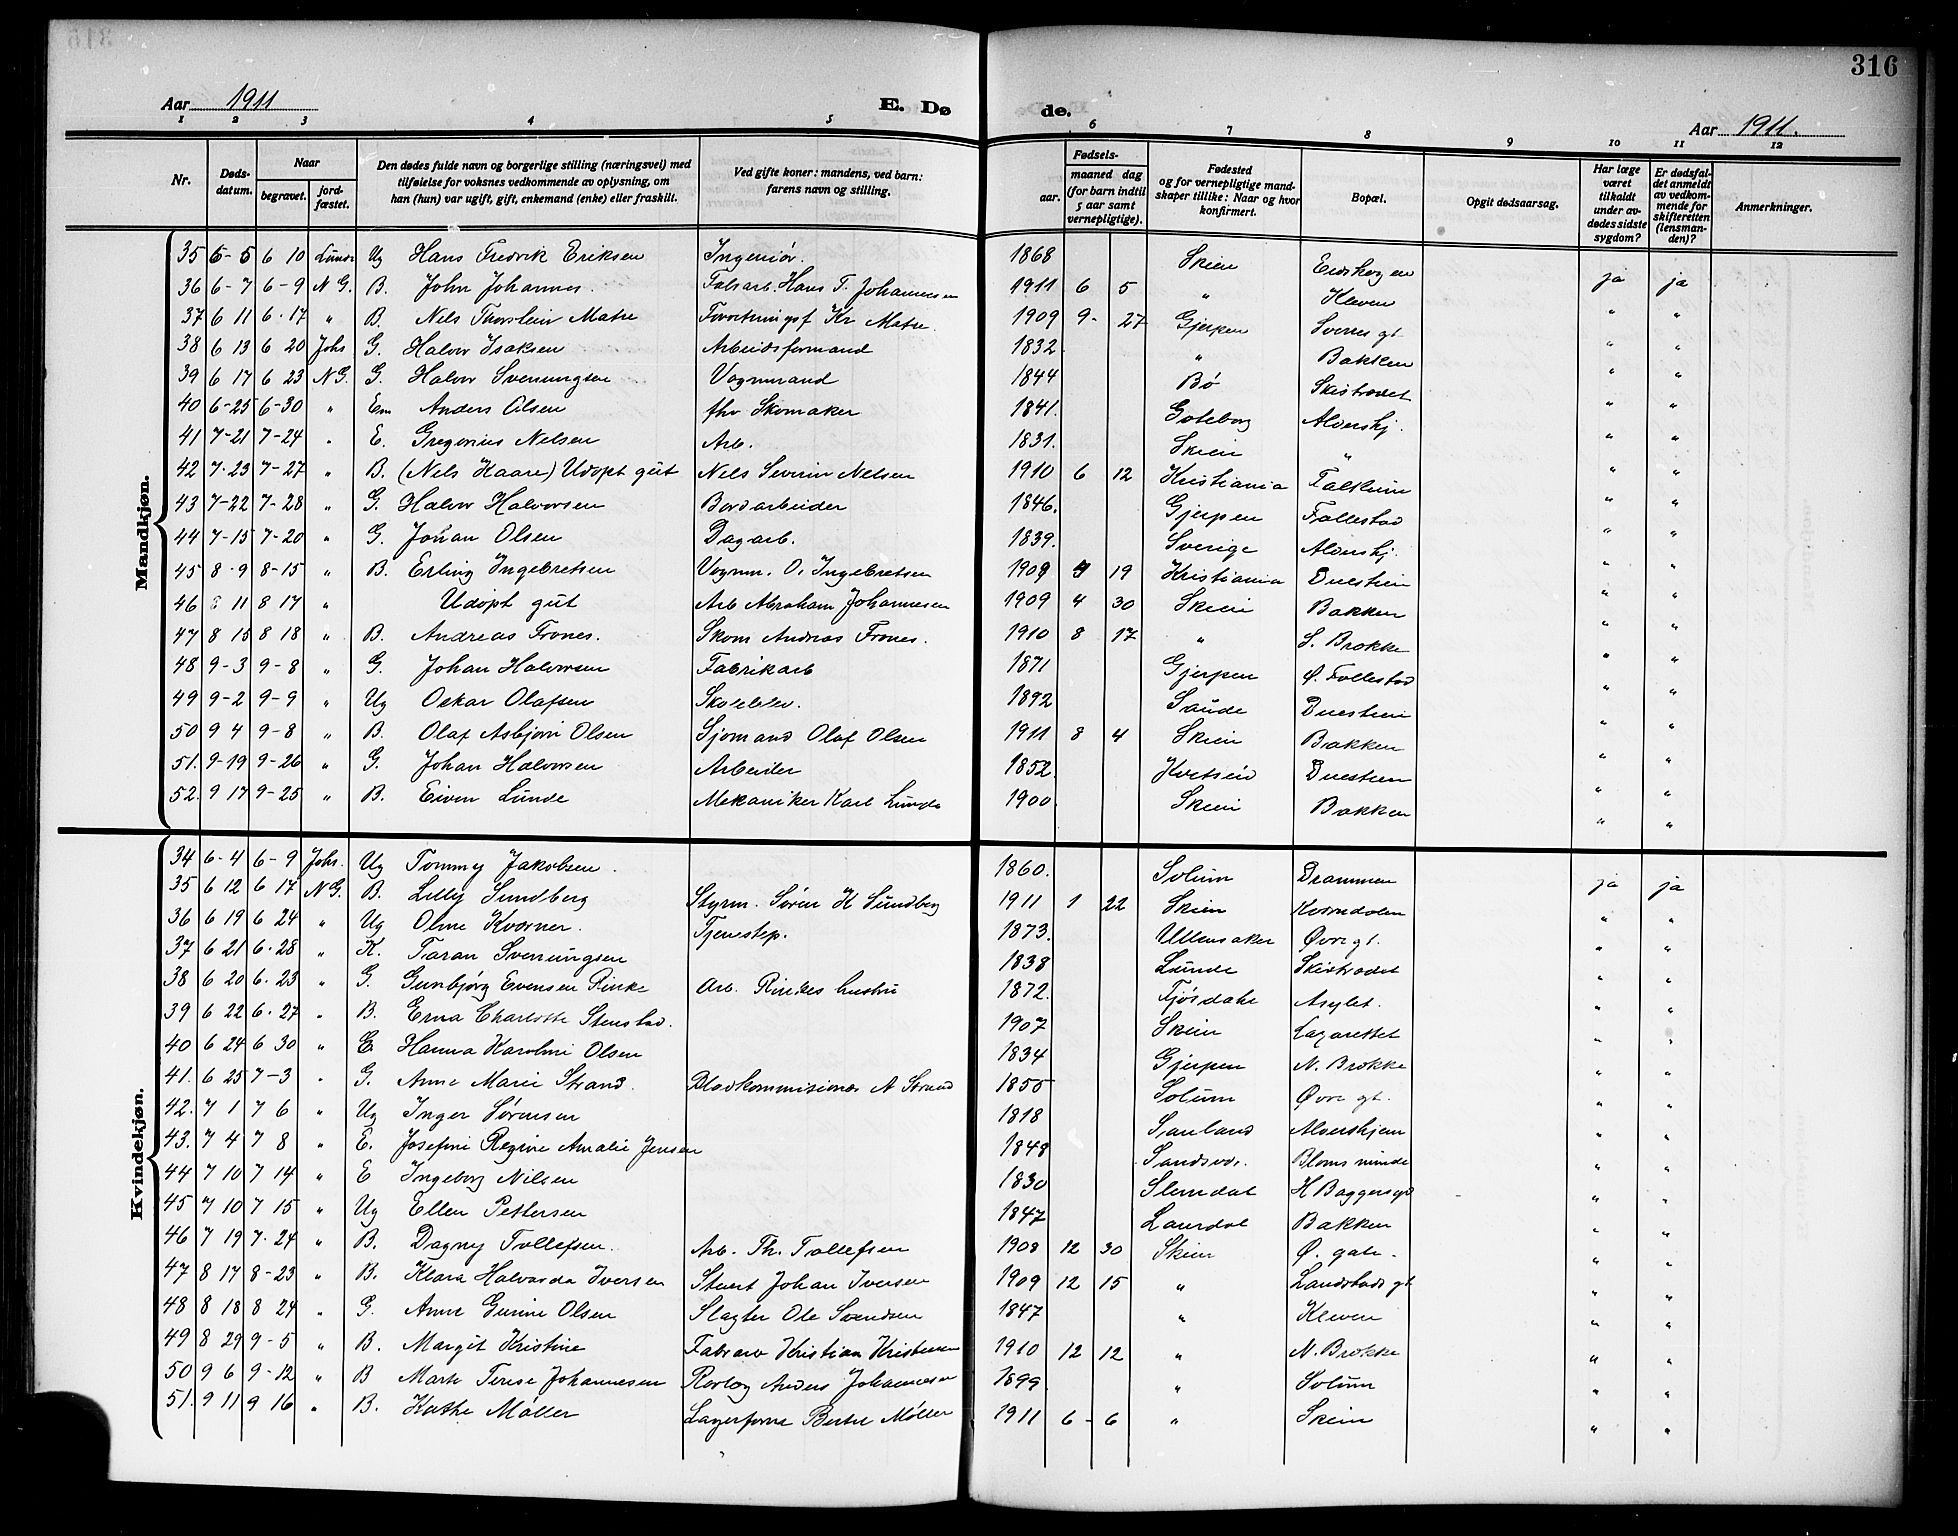 316
Aar 1911
E. Døde.
Aar 1911.
1 2 3 4 5 6 7 8 9 10 11 12
Nr.
Døds-datum.
Naar
begravet.
jord-fæstet.
Den dødes fulde navn og borgerlige stilling (næringsvei) med tilføielse for voksnes vedkommende av oplysning, om han (hun) var ugift, gift, enkemand (enke) eller fraskilt.
Ved gifte koner: mandens, ved barn: farens navn og stilling.
Fødsels-
aar.
maaned dag (for barn indtil 5 aar samt vernepligtige).
Fødested og for vernepligtige mandskaper tillike: Naar og hvor konfirmert.
Bopæl.
Opgit dødsaarsag.
Har læge været tilkaldt under avdødes sidste sygdom?
Er dødsfaldet anmeldt av vedkommende for skifteretten (lensmanden)?
Anmerkninger.
Mandkjøn.
35 6-5 6 10 Ug Hans Fredrik Eriksen Ingeniør. 1868 Skien ja ja
36 6-7 6-9 N G. B. John Johannes. Hans T. Johannesen 1911 6 5 " Kleven " "
37 6 11 6-17 " B. Nels Thorstein Matre Kr Matre. 1909 9- 27 Gjerpen Sverres gt. " "
38 6 13 6 20 Johs G. Halvor Isaksen Arbeidsformand 1832 " Bakken " "
39 6 17 6 23 N G. G. Halvor Svenungsen Vognmand 1844 Bø Skistredet " "
40 6-25 6-30 " Em Anders Olsen fhv Skomaker 1841. Goteborg Alvershj. " "
41 7-21 7-24 " E. Gregorius Nelsen Arb. 1831. Skien " " "
42 7-23 7-27 " B. (Nels Kaare) Udøpt gut Nels Severin Nelsen 1910 6 12 Kristiania Falkum " "
43 7-22 7-28 " G. Halvor Halvorsen Bordarbeider 1846. Gjerpen Follestad " "
44 7-15 7-20 " G. Johan Olsen Dagarb. 1839. Sverige Alvershj. " "
45 8-9 8-15 " B. Erling Ingebretsen Vognm. O. Ingebretsen 1908 19 Kristiania Duestien " "
46 8 11 8 17 " Udøpt gut Arb Abraham Johannesen 1909 4 30 Skien Bakken " "
47 8 15 8 18 " B. Andreas Frones. Skom Andreas Frones. 1910 8 17 " S. Brokke " "
48 9-3 9-8 " G. Johan Halvorsen Fabrikarb 1871 Gjerpen Ø. Follestad " "
49 9-2 9-9 " Ug Oskar Olafsen Skoleelev. 1892 Saude Duestien " "
50 9 4 9-8 " B. Olaf Asbjørn Olsen Sjømand Olaf Olsen 1911 8 4 Skien Bakken " "
51. 9-19 9-26 " G. Johan Halvorsen Arbeider 1852. Kvitseid Duestien " "
52. 9 17 9-25 " B. Eivin Lunde Mekaniker Karl Lunde 1900. Skien Bakken " "
Kvindekjøn.
34 6-4 6-9 Johs. Ug Tommy Jakobsen. 1860. Solum Drammen ja ja
35 6 12 6 17 N G. B. Lilly Sundberg Styrm. Søren H Sundberg 1911 1 22 Skien " "
36 6 19 6 24 " Ug Oline Kværner. Tjenestep. 1873. Ullensaker Øvre gt. " "
37 6 21 6-28 " K. Taran Svenungsen 1838 Lunde Skistredet " "
38 6 20 6-23 " G. Gunbjørg Evensen Rinke Arb. Rinkes hustru 1872. Asylet. " "
39 6 22 6-27 " B. Erna Charlotte Stenstad. 1907 Skien Lazarettet " "
40 6 24 6 30 " E Hanna Karoline Olsen 1834 Gjerpen N. Brokke " "
41. 6 25 7-3 " G. Anne Marie Strand. Bladkommisionær A Strand 1855 Solum Øvre gt. " "
42. 7 1 7 6 " Ug Inger Sørensen 1818 Sauland Alvershjem " "
43. 7 4 7 8 " E. Josefine Regine Amalie Jensen 1848 Sandsvær. Bloms minde " "
44 7 10 7 14 " E Ingeborg Nilsen 1830 Slemdal H Baggersgt " "
45 7 10 7 15 " Ug Ellen Pettersen 1847 Laurdal Bakken " "
46 7 19 7-24 " B. Dagny Tollefsen. Arb. Th. Tollefsen 1908 12 30 Skien Ø. gate. " "
47 8 17 8-23 " B. Klara Halvarda Iversen Stuert Johan Iversen 1909 12 15 " Landstads gt " "
48 8 18 8 24 " G. Anne Gurine Olsen Slagter Ole Svendsen 1847 " Kleven " "
49 8 29 9-5 " B. Margit Kristine Fabrarb Kristian Kristensen 1910 12 12 " N. Brokke " "
50 9 6 9-12 " B Marte Terese Johannesen Rørlæg Anders Johannesen 1899 " Solum " "
51. 9 11 9 16 " B. Kathe Møller Lagerform Bertel Møller 1911 6-6 " Skien " "